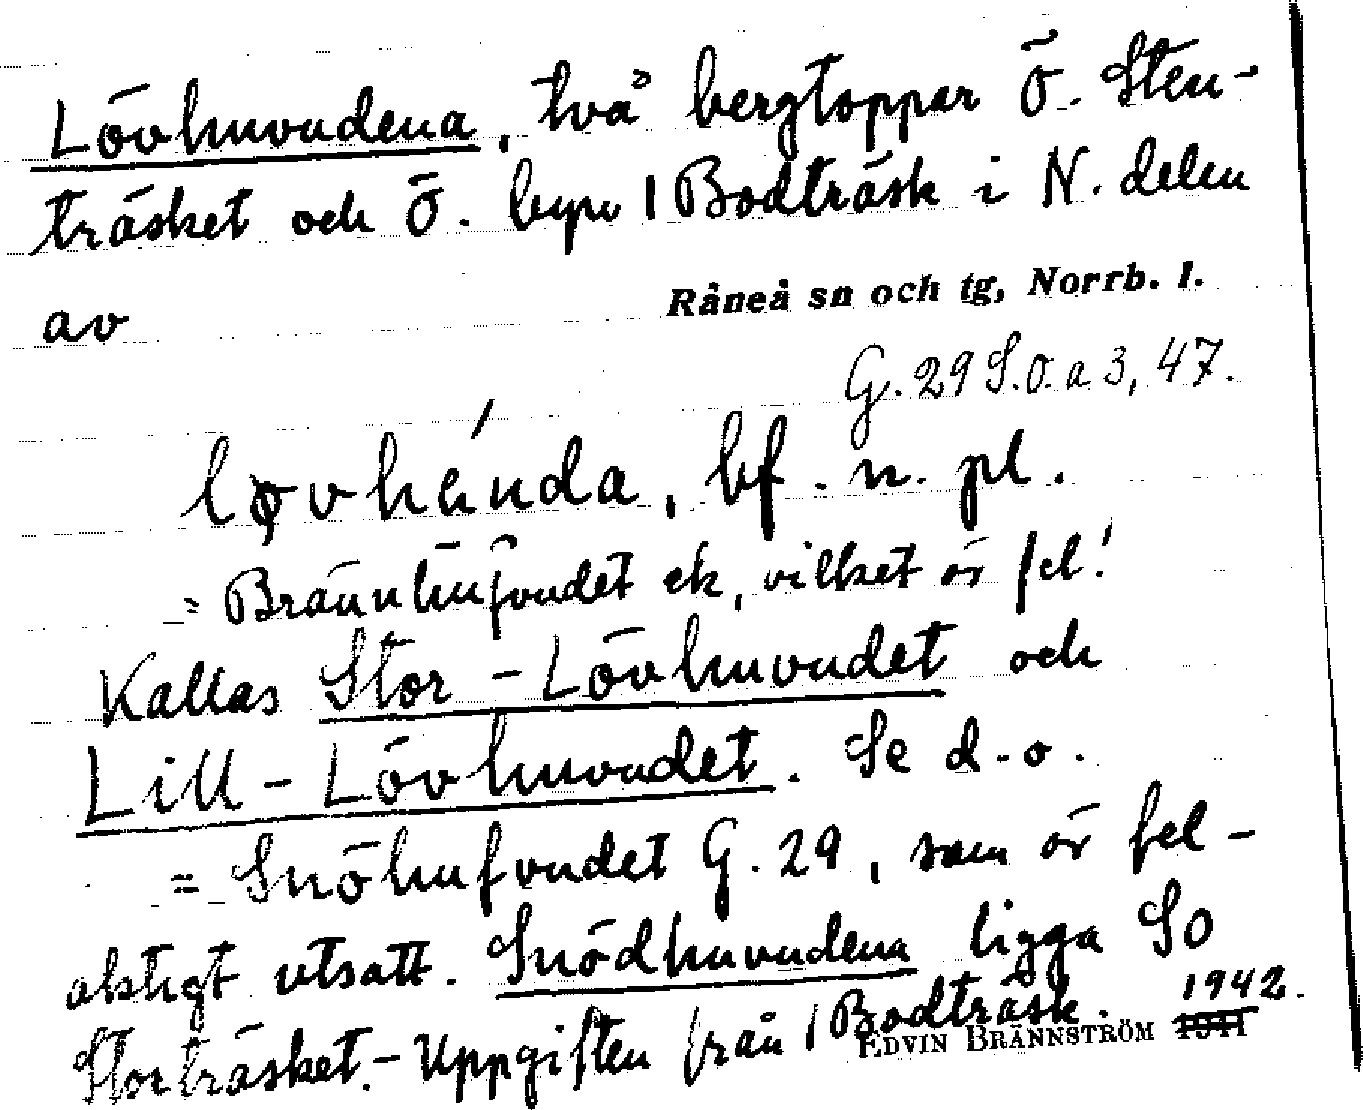 Lövhuvudena, två bergtoppar Ö. Sten-
träsket och Ö. byn 1 Bodträsk i N. delen
av Råneå sn och tg, Norrb. l.
G. 29 S.O. a 3, 47.
bf. n. pl.
= Brännhufvudet ek, vilket är fel!
Kallas Stor-Lövhuvudet och
Lill-Lövhuvudet. Se d.o.
= Snöhufvudet G. 29, som är fel-
aktigt utsatt. Snödhuvudena ligga SO
Storträsket. - Uppgiften från 1 Bodträsk.
EDVIN BRÄNNSTRÖM 1942.
1941